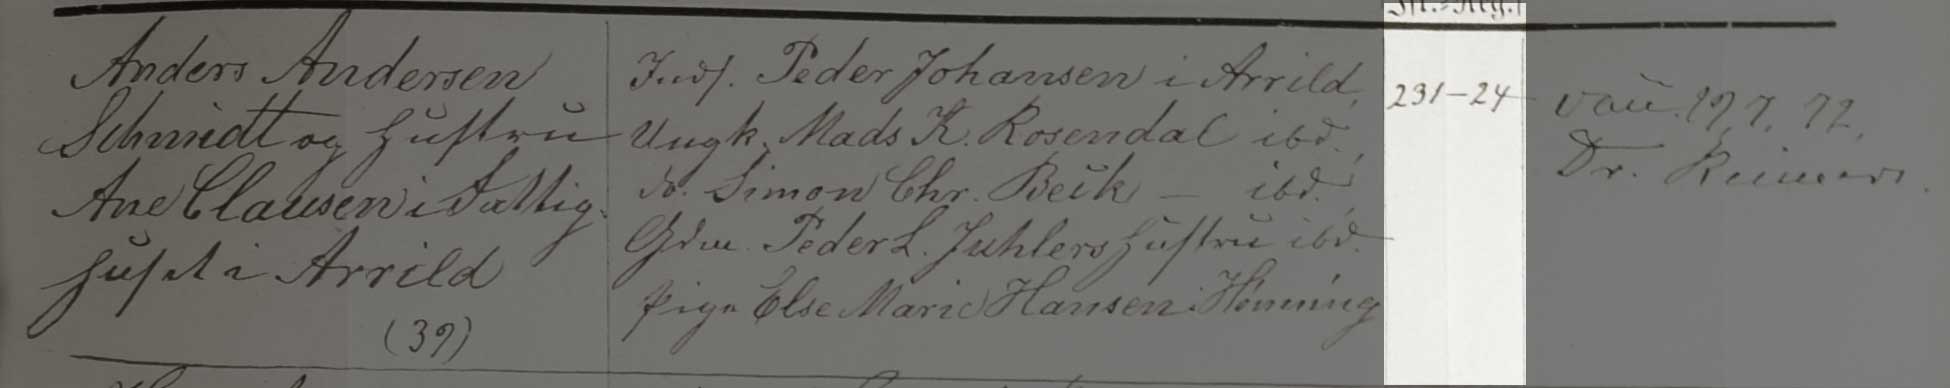 Jfr.-Reg.
Anders Andersen
Schmidt og Hustru
Ane Clausen i Fattig-
huset i Arrild
(39)
Inds. Peder Johansen i Arrild,
Ungk. Mads K. Rosendal ibd.,
do. Simon Chr. Beck – ibd.,
Gdm. Peder L. Juhlers Hustru ibd.
Pige Else Marie Hansen Hönning
231–24
vac. 19.7.72.
Dr. Reimers.